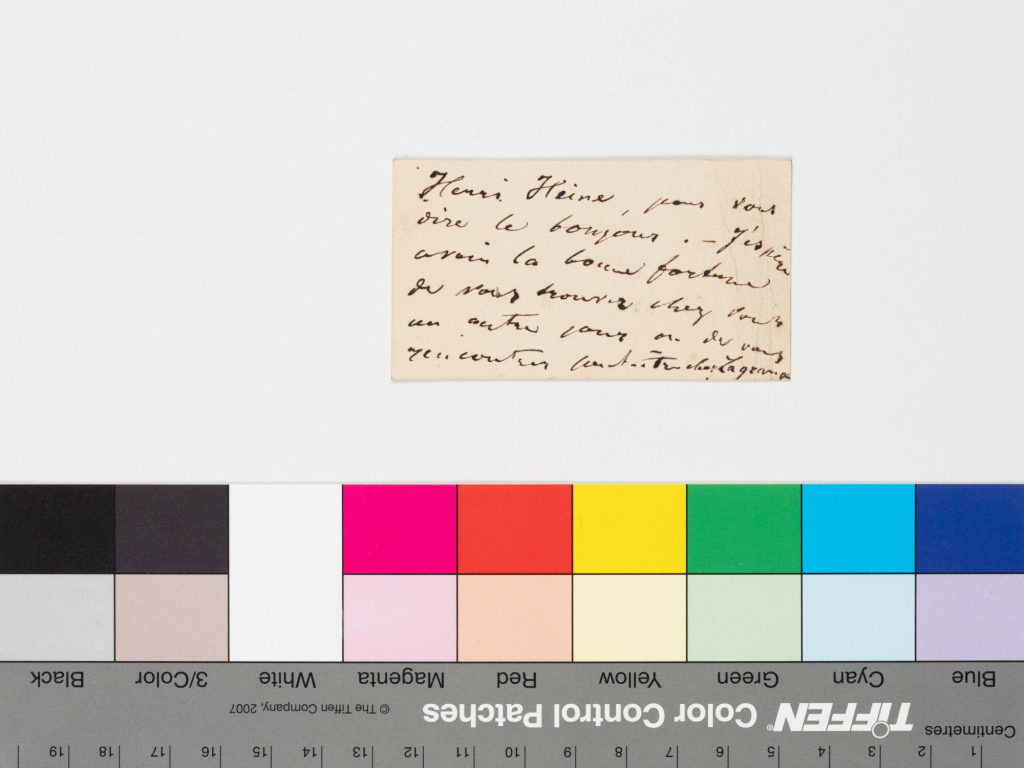 Henri Heine, pour vous
dire le bonjour. – J'espère
avoir la bonne fortune
de vous trouver chez vous
un autre jour ou de vous
rencontrer peut-être chez Lagrange
Black 3/Color White Magenta Red Yellow Green Cyan Blue
© The Tiffen Company, 2007
TIFFEN® Color Control Patches
Centimetres
1 2 3 4 5 6 7 8 9 10 11 12 13 14 15 16 17 18 19